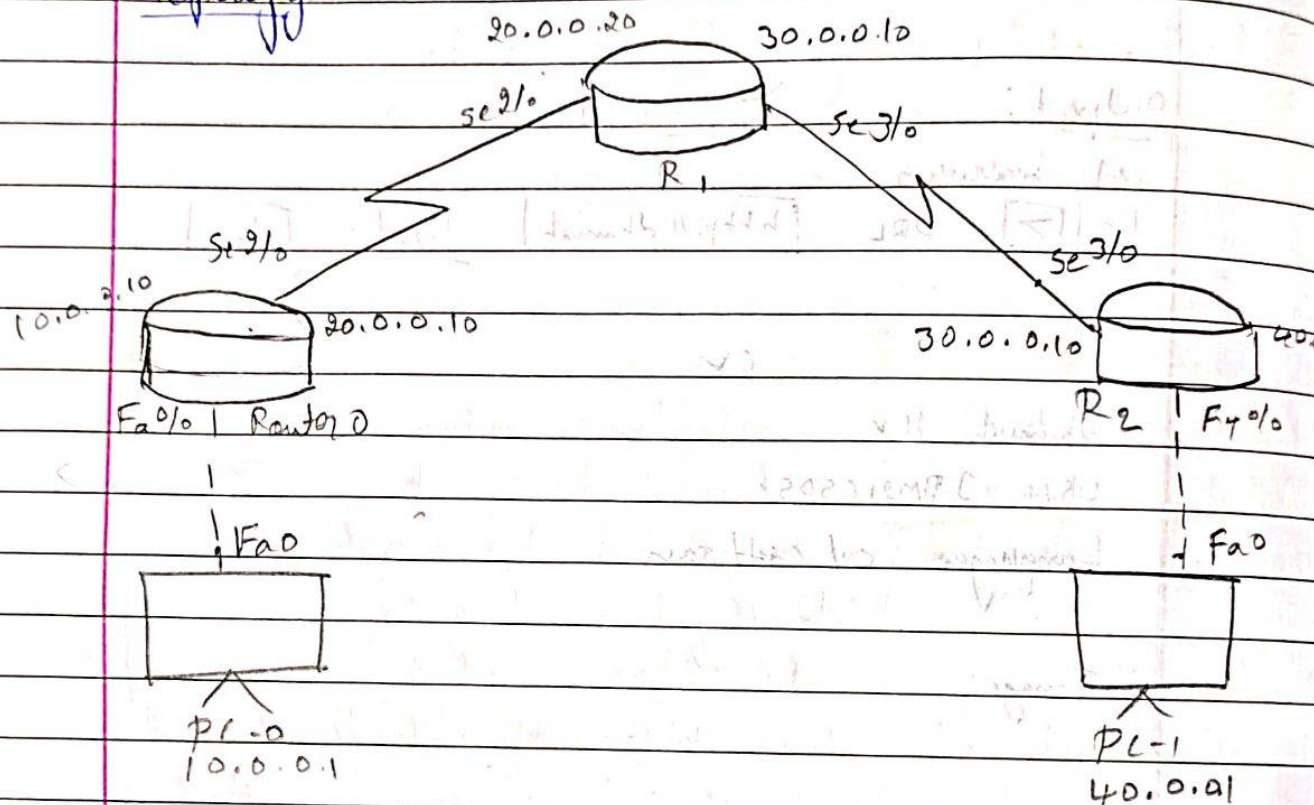 Topology
20.0.0.20 30.0.0.10
Se2/0
Se3/0
R1
Se2/0
Se3/0
10.0.0.10
20.0.0.10
30.0.0.10
40.
Fa0/0 Router 0
R2 Fa0/0
Fa0
Fa0
PC-0
10.0.0.1
PC-1
40.0.01